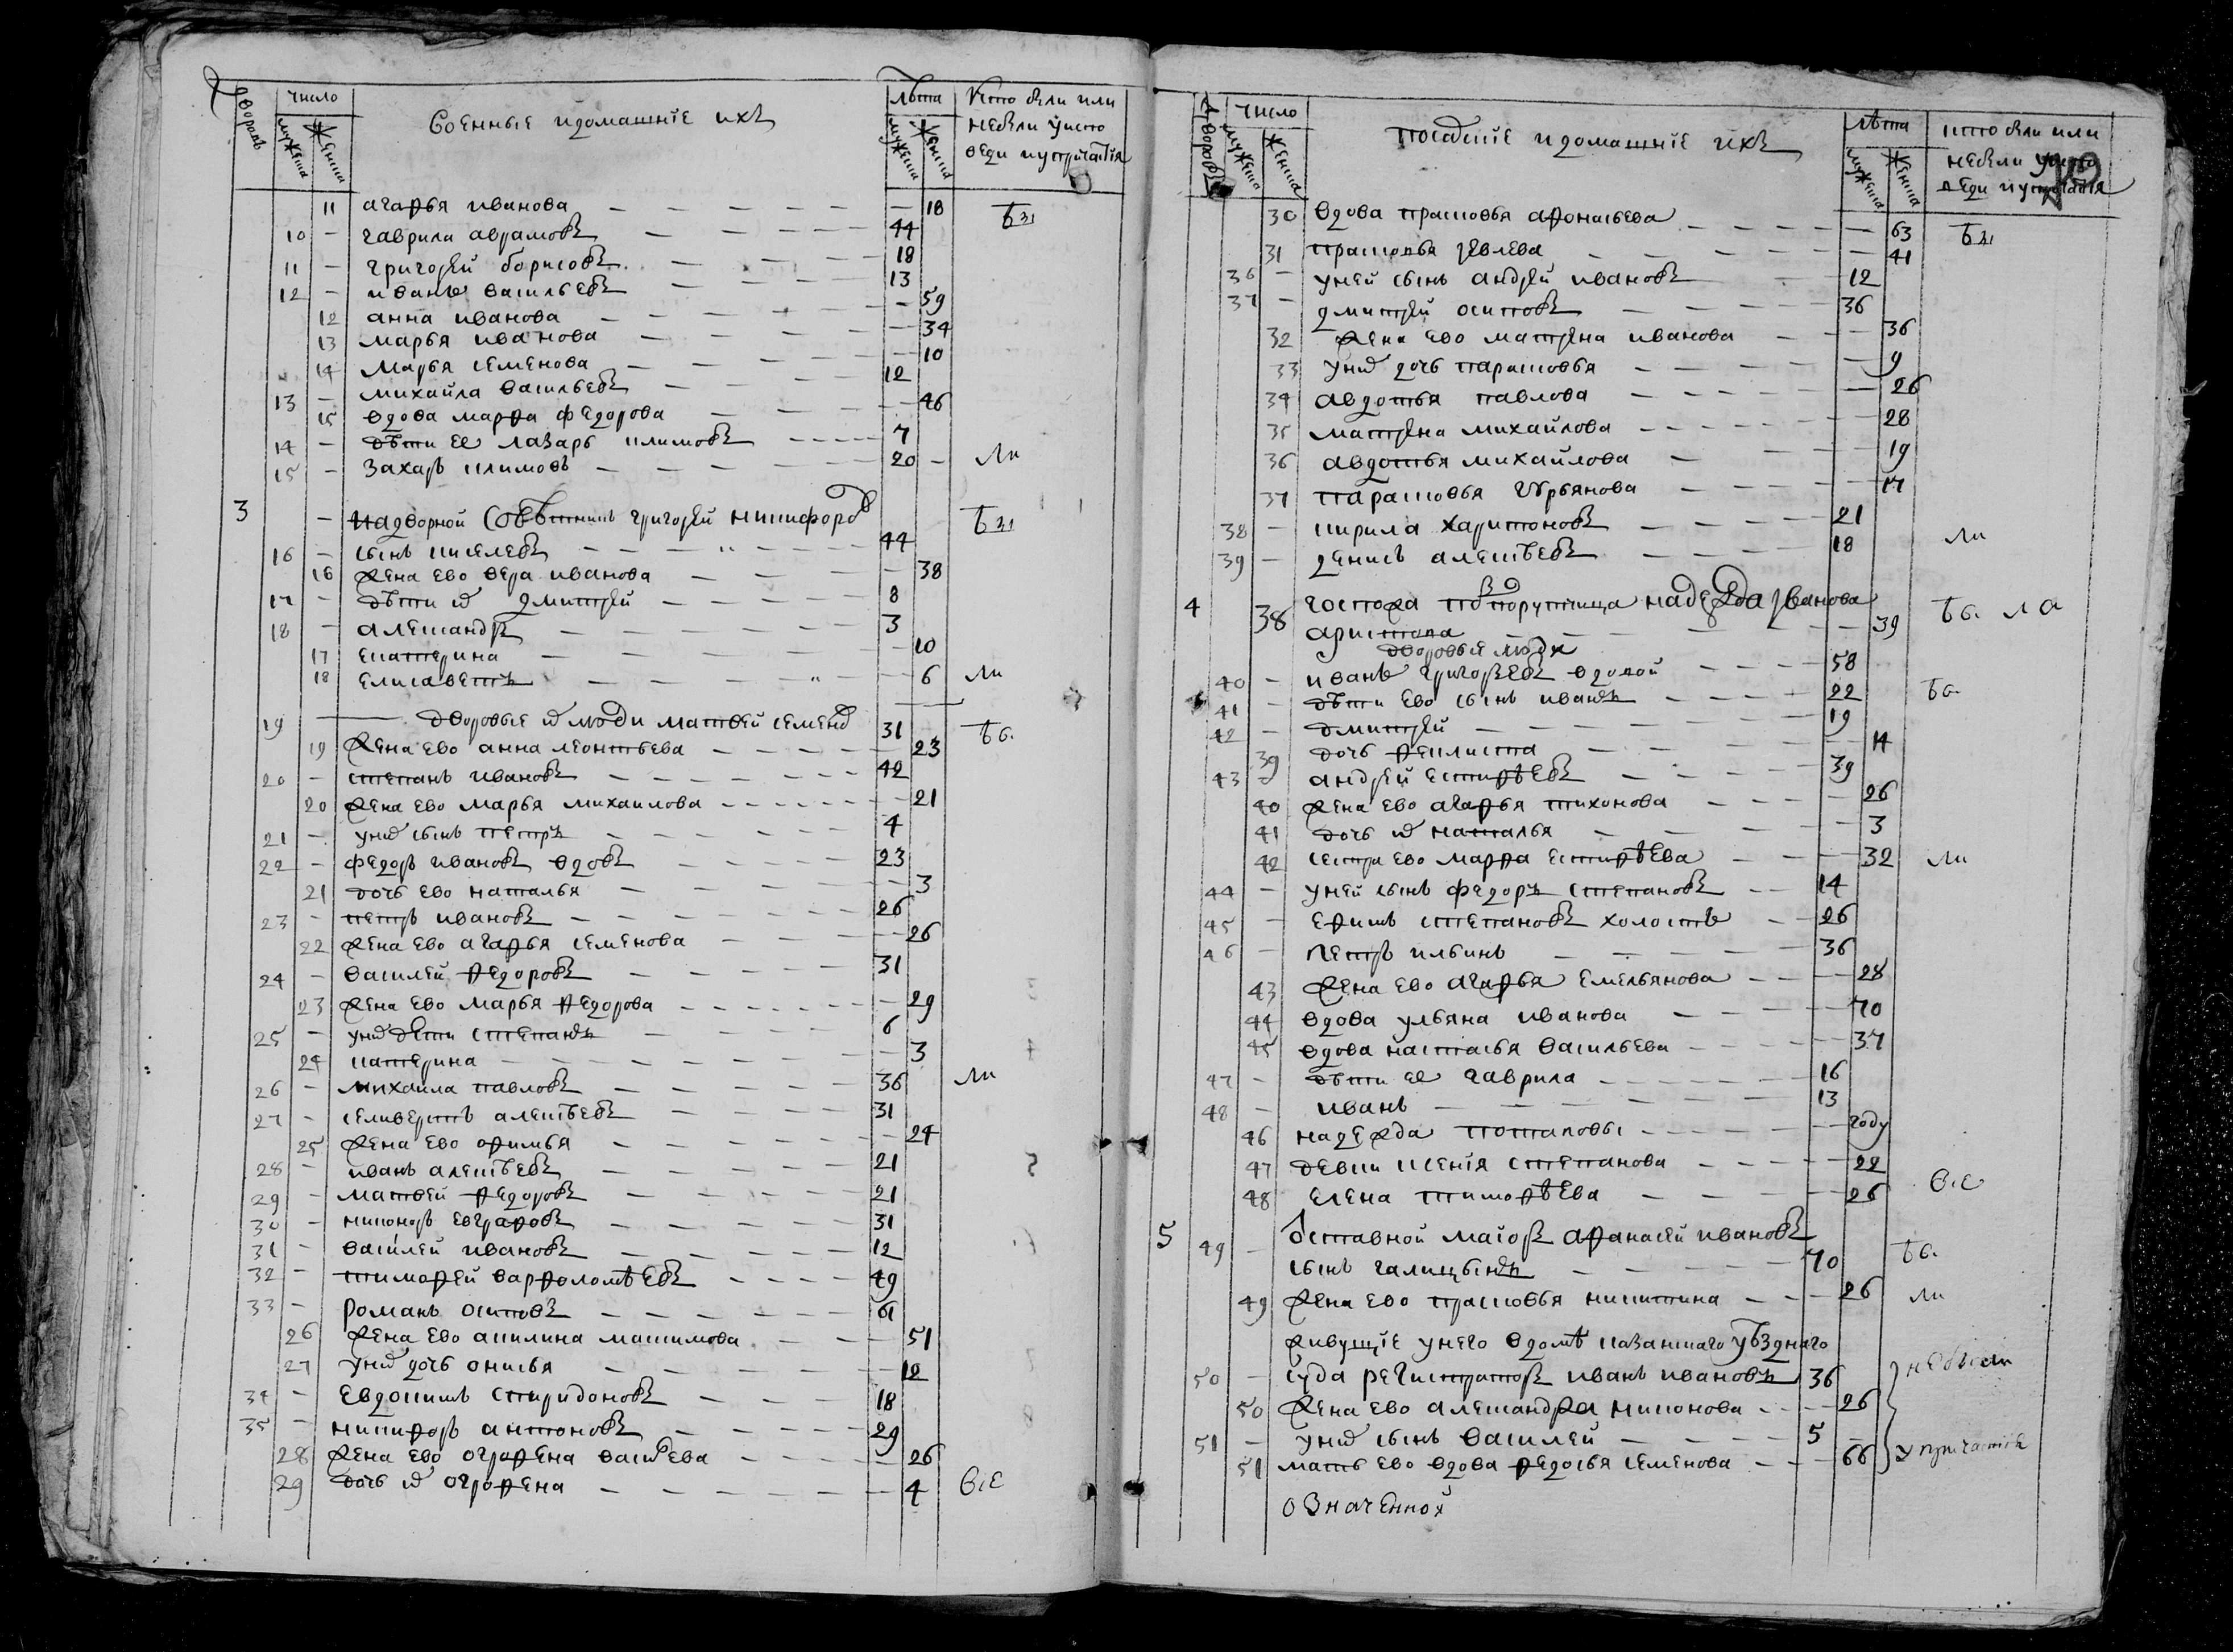 дворовъ число лѣта кто были или
мужеска женска военные и домашнiе ихъ мужеска женска небыли у исповеди и упричастiя
11 агафья иванова — 18 бы
10 — гаврила аврамовъ — 44
11 — григорей борисовъ — 18
12 — иванъ васильевъ — 13
12 анна иванова — 59
13 марья иванова — 34
14 марья семенова — 10
13 — михайла васильевъ — 12
15 вдова марфа федорова — 46
14 — дѣти ее лазарь климовъ — 7
15 — захаръ климовъ — 20 — ли
3 — надворной совѣтникъ григорей никифоровъ бы
16 — сынъ киселевъ — 44
16 жена ево вера иванова — 38
17 — дѣти их дмитрей — 8
18 — александръ — 3
17 екатерина — 10
18 елисаветъ — 6 ли
19 — дворовые их люди матвей семеновъ 31 бы
19 жена ево анна леонтьева — 23
20 — степанъ ивановъ — 42
20 жена ево марья михаилова — 21
21 — у них сынъ петръ — 4
22 — федоръ ивановъ вдовъ — 23
21 дочь ево наталья — 3
23 — петръ ивановъ — 26
22 жена ево агафья семенова — 26
24 — василей федоровъ — 31
23 жена ево марья федорова — 29
25 — у них дети степанъ — 6
24 катерина — 3
26 — михаила павловъ — 36 ли
27 — селиверстъ алексѣевъ — 31
25 жена ево офимья — 24
28 — иванъ алексѣевъ — 21
29 — матвей федоровъ — 21
30 — никоноръ евграфовъ — 31
31 — василей ивановъ — 12
32 — тимофей варфоломѣевъ — 49
33 — романъ осиповъ — 61
26 жена ево акилина максимова — 51
27 у них дочь онисья — 12
34 — евдокимъ спиридоновъ — 18
35 — никифоръ антоновъ — 29
28 жена ево огрофена васильева — 26
29 дочь их огрофена — 4 все
дворовъ число лѣта кто были или
мужеска женска посадскiе и домашнiе ихъ мужеска женска небыли у исповеди и упричастiя
30 вдова прасковья афонасьева — 63 бы
31 прасковья iевлева — 41
36 — у ней сынъ андрей ивановъ — 12
37 — дмитрей осиповъ — 36
32 жена ево матрена иванова — 36
33 у них дочь парасковья — 9
34 авдотья павлова — 26
35 матрена михайлова — 28
36 авдотья михайлова — 19
37 парасковья гурьянова — 17
38 — кирила харитоновъ — 21
39 — денисъ алексѣевъ — 18 ли
4 38 госпожа подпорутчица надежда iванова
аристова — 39 была
дворовые люди
40 — иванъ григорьевъ вдовой — 58
41 — дѣти ево сынъ иванъ — 22 бы
42 — дмитрей — 19
39 дочь феклиста — 14
43 — андрей естифѣевъ — 39
40 жена ево агафья тихонова — 26
41 дочь их наталья — 3
42 сестра ево марфа естифѣева — 32 ли
44 — у ней сынъ федоръ степановъ — 14
45 — ефимъ степановъ холостъ — 26
46 — петръ ильинъ — 36
43 жена ево агафья емельянова — 28
44 вдова ульяна иванова — 70
45 вдова настасья васильева — 37
47 — дѣти ее гаврила — 16
48 — иванъ — 13
46 надежда потаповы — году
47 девки ксенiя степанова — 22
48 елена тимофѣева — 26 все
5 49 — отставной маiоръ афанасей ивановъ
сынъ галицынъ — 70 бы
49 жена ево прасковья никитина — 26 ли
живущiе у него в домѣ казанскаго уѣзднаго
50 — суда регистраторъ иванъ ивановъ 36 небыли
50 жена ево александра никонова — 26
51 — у них сынъ василей — 5
51 мать ево вдова федосья семенова — 66 у причастiя
означенной